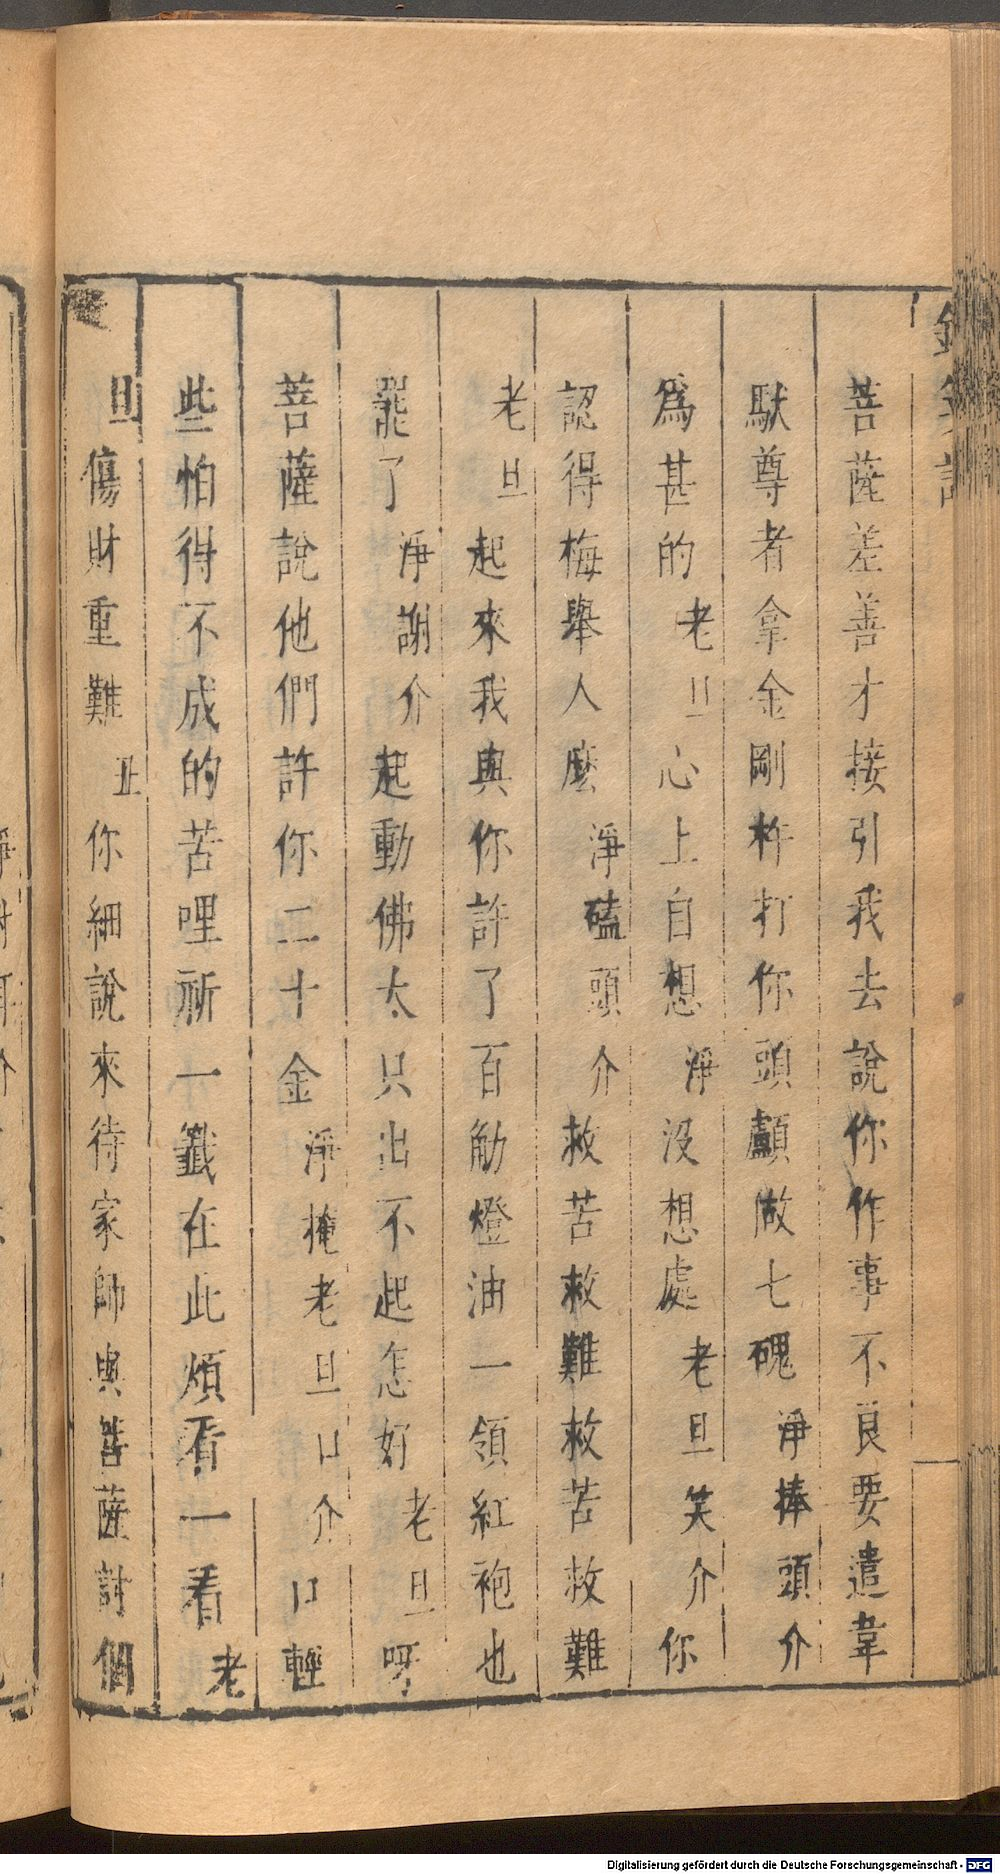 菩薩差善才接引我去說你作事不良要遣韋
馱尊者拿金剛杵打你頭顱做七磈淨捧頭介
爲甚的老旦心上自想淨没想處老旦笑介你
認得梅舉人麽淨磕頭介救苦救難救苦救難
老旦起來我與你許了百觔燈油一領紅袍也
罷了淨謝介起動佛太只出不起怎好老旦呀
菩薩說他們許你二十金淨掩老旦口介口輕
些怕得不成的苦哩祈一籤在此煩看一看老
旦傷財重難丑你細說來待家師與菩薩討個
Digitalisierung gefördert durch die Deutsche Forschungsgemeinschaft - DFG